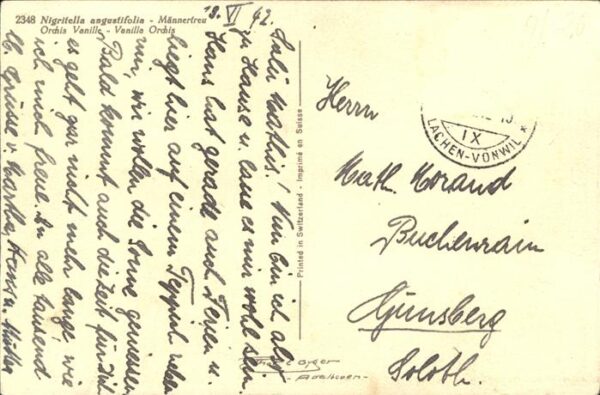 2348 Nigritella angustifolia - Männertreu
Orchis Vanille - Vanilla Orchis
13. VI 42.
Salü Mathis! Nun bin ich also
zu Hause u. lasse es mir wohl sein.
Hans hat gerade auch Ferien u.
liegt hier auf einem Teppich neben
mir, wir wollen die Sonne geniessen.
Bald kommt auch die Zeit für dich
es geht gar nicht mehr lange, wie
ich mich freue. An alle tausend
lb. Grüsse v. Martha Hans u. Mutter
Printed in Switzerland - Imprimé en Suisse
LACHEN-VONWIL
IX
Herrn
Math. Morand
Buchenrain
Günsberg
Soloth.
Gyger
- Adelboden -